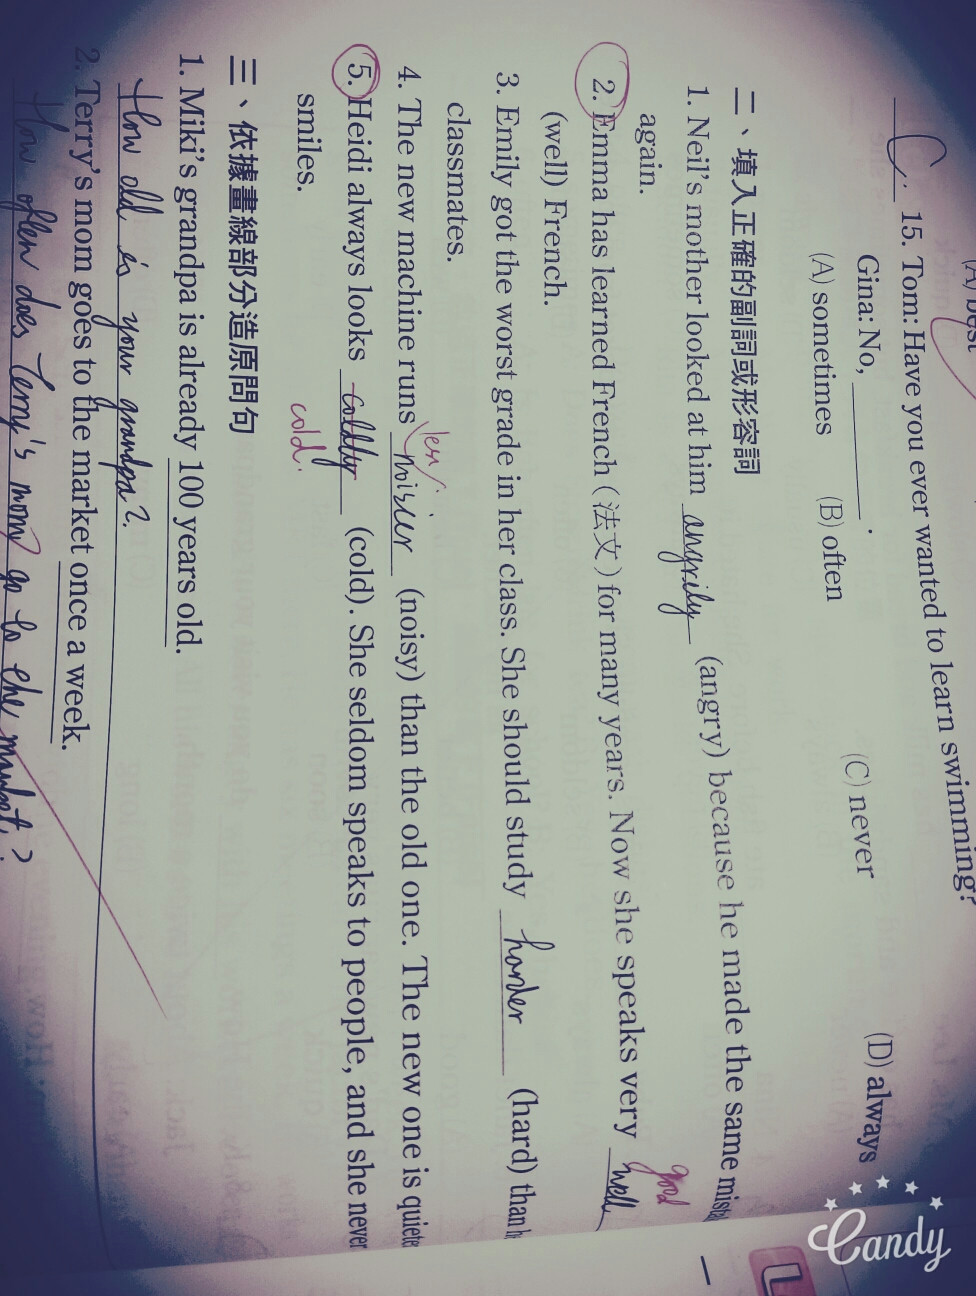 (A) best
C 15. Tom: Have you ever wanted to learn swimming?
Gina: No, ________.
(A) sometimes (B) often (C) never (D) always
二、填入正確的副詞或形容詞
1. Neil's mother looked at him angrily (angry) because he made the same
again.
good
2. Emma has learned French (法文) for many years. Now she speaks very well
(well) French.
3. Emily got the worst grade in her class. She should study harder (hard) than
classmates.
4. The new machine runs (noisy) than the old one. The new one is
5. Heidi always looks coldly (cold). She seldom speaks to people, and she never
cold.
smiles.
三、依據畫線部分造原問句
1. Miki's grandpa is already 100 years old.
How old is your grandpa?
2. Terry's mom goes to the market once a week.
How often does Terry's mom go to the market?
Candy